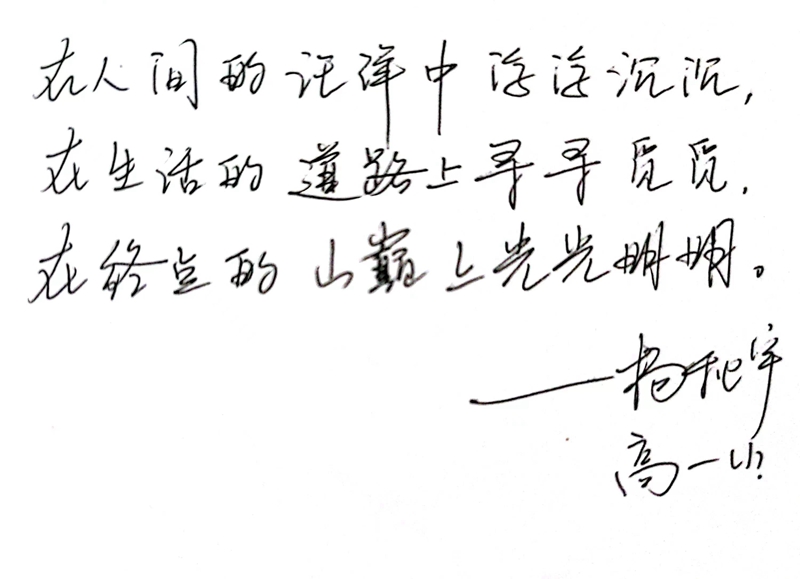 在人间的汪洋中浮浮沉沉，
在生活的道路上寻寻觅觅，
在终点的山巅上光光明明。
——杨
高一